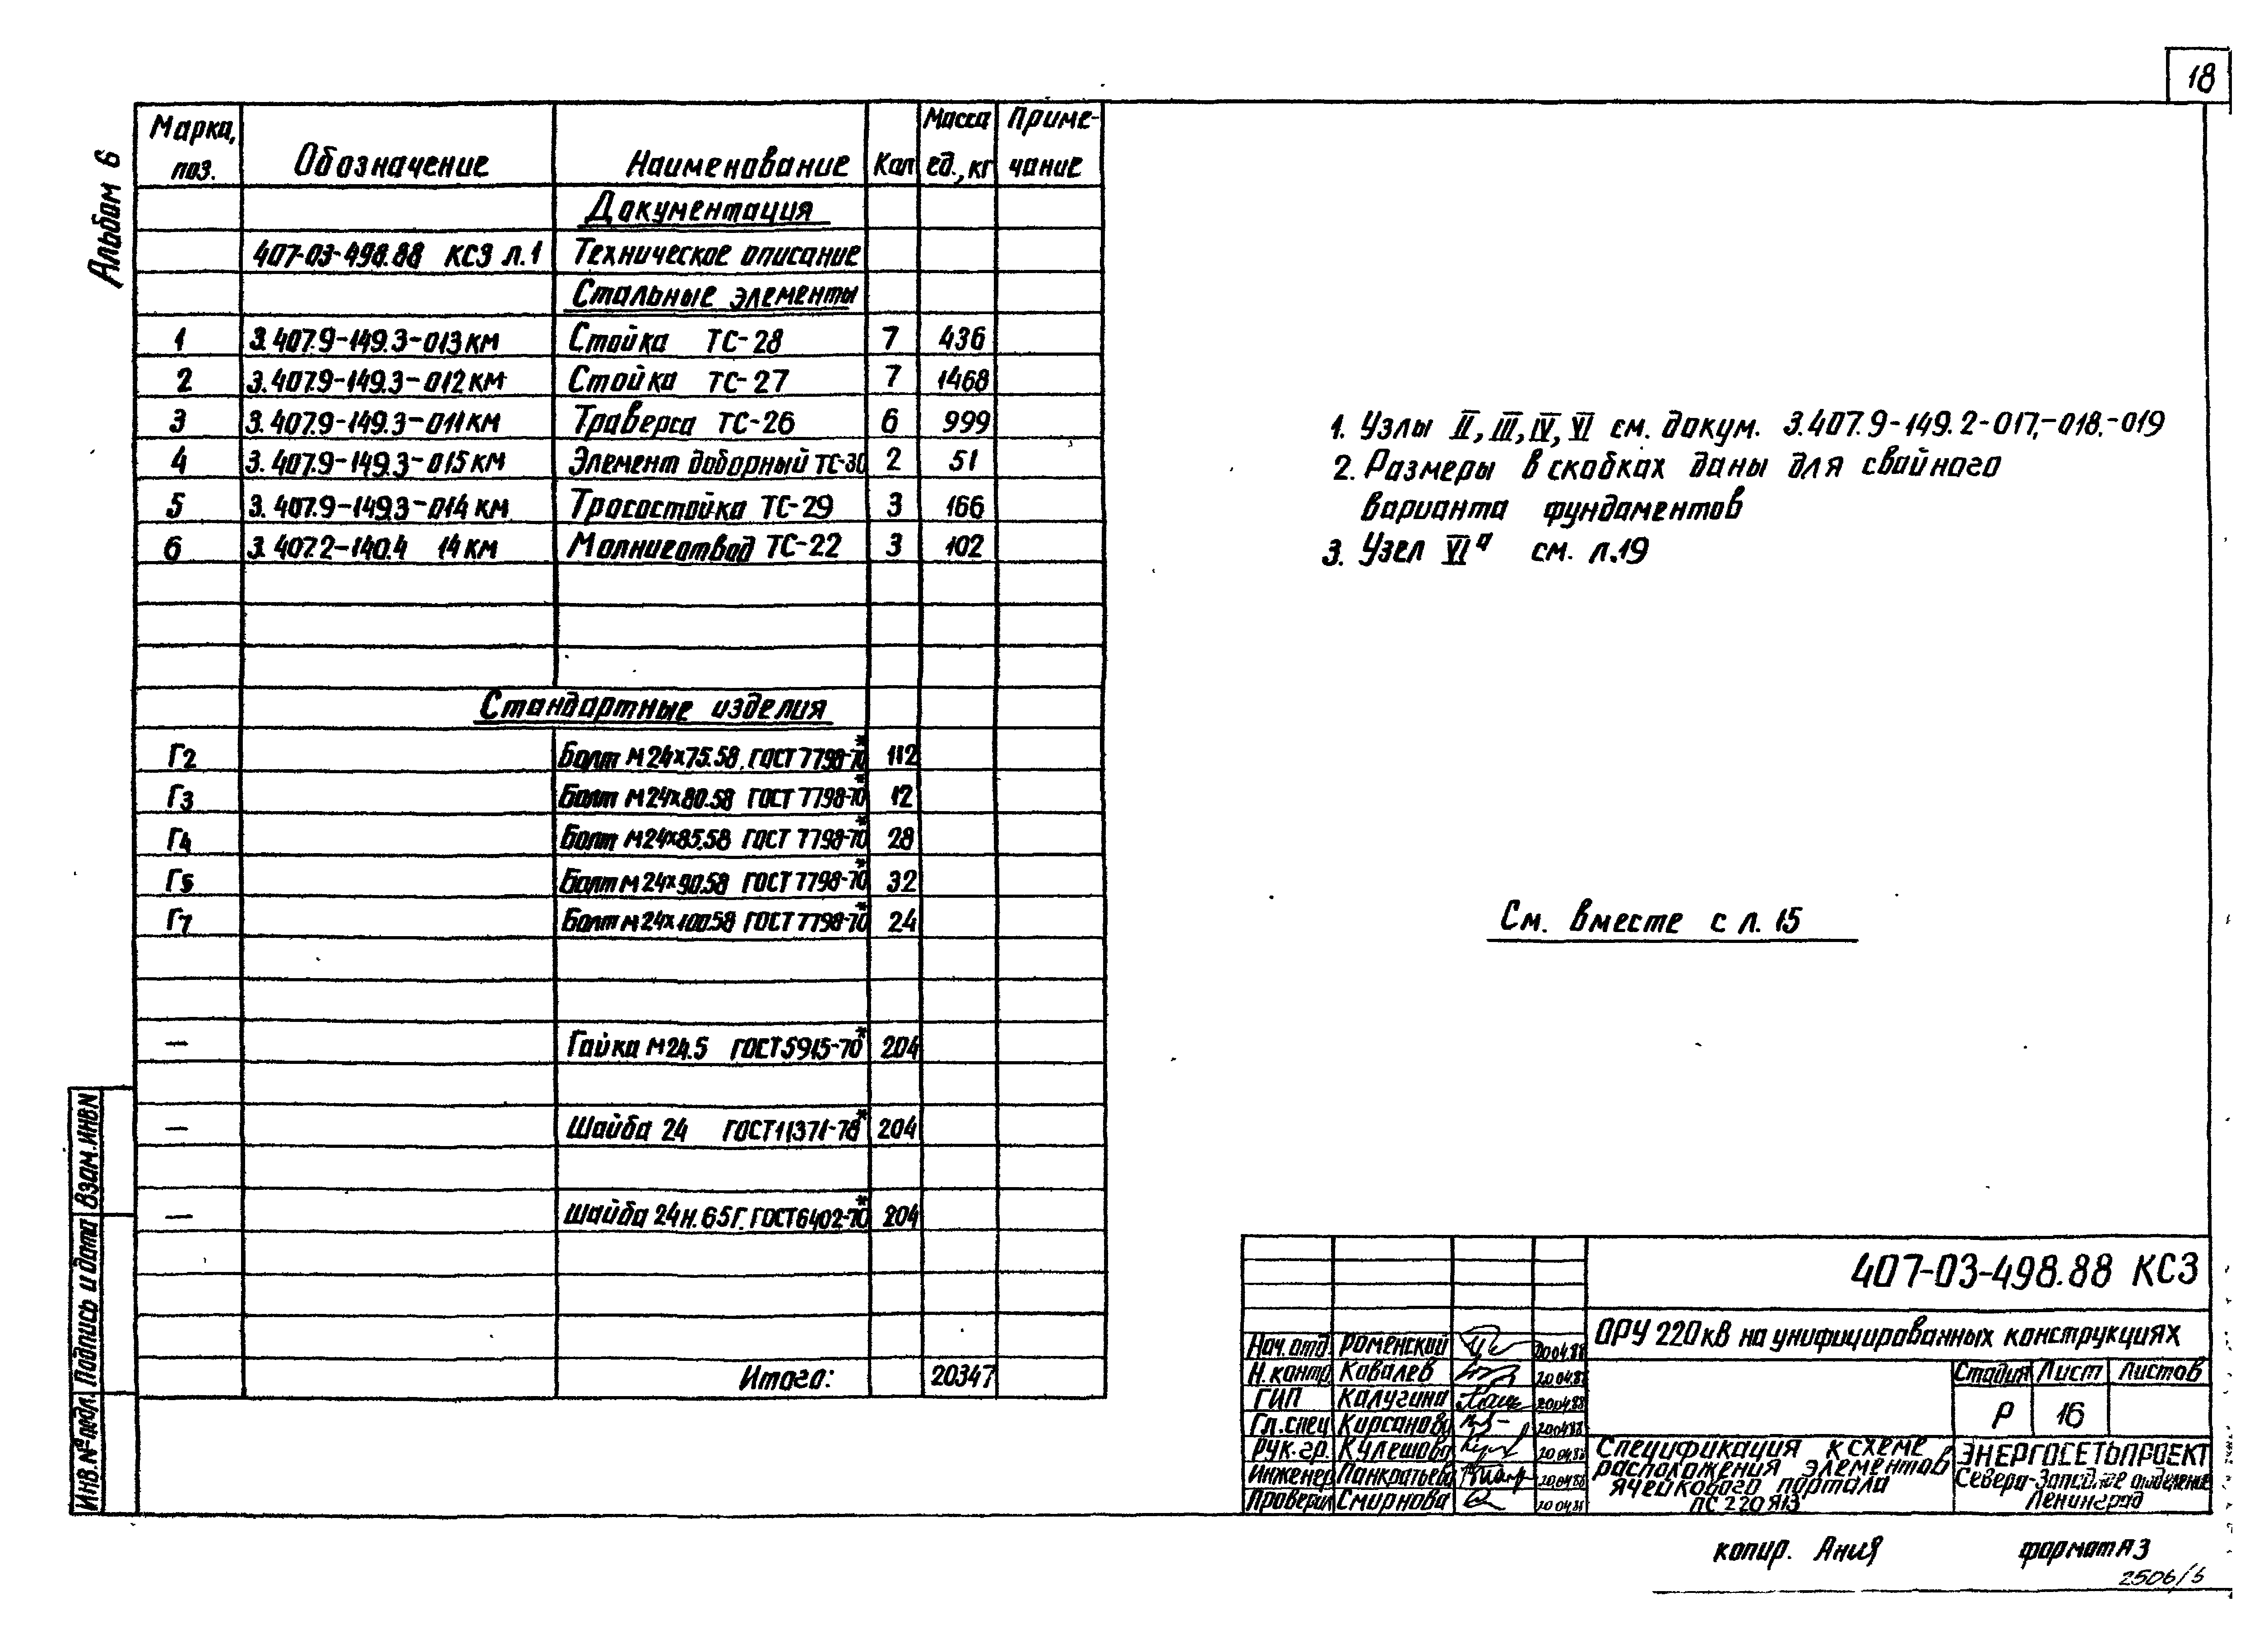 18
Альбом 6
Марка, поз. Обозначение Наименование Кол Масса ед., кг Примечание
Документация
407-03-498.88 КС3 л.1 Техническое описание
Стальные элементы
1 3.407.9-149.3-013КМ Стойка ТС-28 7 436
2 3.407.9-149.3-012КМ Стойка ТС-27 7 1468
3 3.407.9-149.3-011КМ Траверса ТС-26 6 999
4 3.407.9-149.3-015КМ Элемент доборный ТС-30 2 51
5 3.407.9-149.3-014КМ Тросостойка ТС-29 3 166
6 3.407.2-140.4 14КМ Молниеотвод ТС-22 3 102
Стандартные изделия
Г2 Болт М24х75.58. ГОСТ 7798-70* 112
Г3 Болт М24х80.58 ГОСТ 7798-70* 12
Г4 Болт М24х85.58 ГОСТ 7798-70* 28
Г5 Болт М24х90.58 ГОСТ 7798-70* 32
Г7 Болт М24х100.58 ГОСТ 7798-70* 24
— Гайка М24.5 ГОСТ 5915-70* 204
— Шайба 24 ГОСТ 11371-78* 204
— Шайба 24Н.65Г. ГОСТ 6402-70* 204
Итого: 20347
1. Узлы II, III, IV, VI см. докум. 3.407.9-149.2-017,-018,-019
2. Размеры в скобках даны для свайного
варианта фундаментов
3. Узел VIа см. л.19
См. вместе с л. 15
Взам. инв N
Подпись и дата
Инв. № подл.
407-03-498.88 КС3
ОРУ 220кВ на унифицированных конструкциях
Нач. отд Роменский 20.04.88
Н. контр Ковалев 20.04.88
ГИП Калугина 20.04.88
Гл. спец Кирсанова 20.04.88
Рук. гр. Кулешова 20.04.88
Инженер Панкратьева 20.04.88
Проверил Смирнова 20.04.88
Стадия Лист Листов
Р 16
Спецификация к схеме
расположения элементов
ячейкового портала
ПС 220Я13
ЭНЕРГОСЕТЬПРОЕКТ
Северо-Западное отделение
Ленинград
копир. Ания формат А3
2506/6